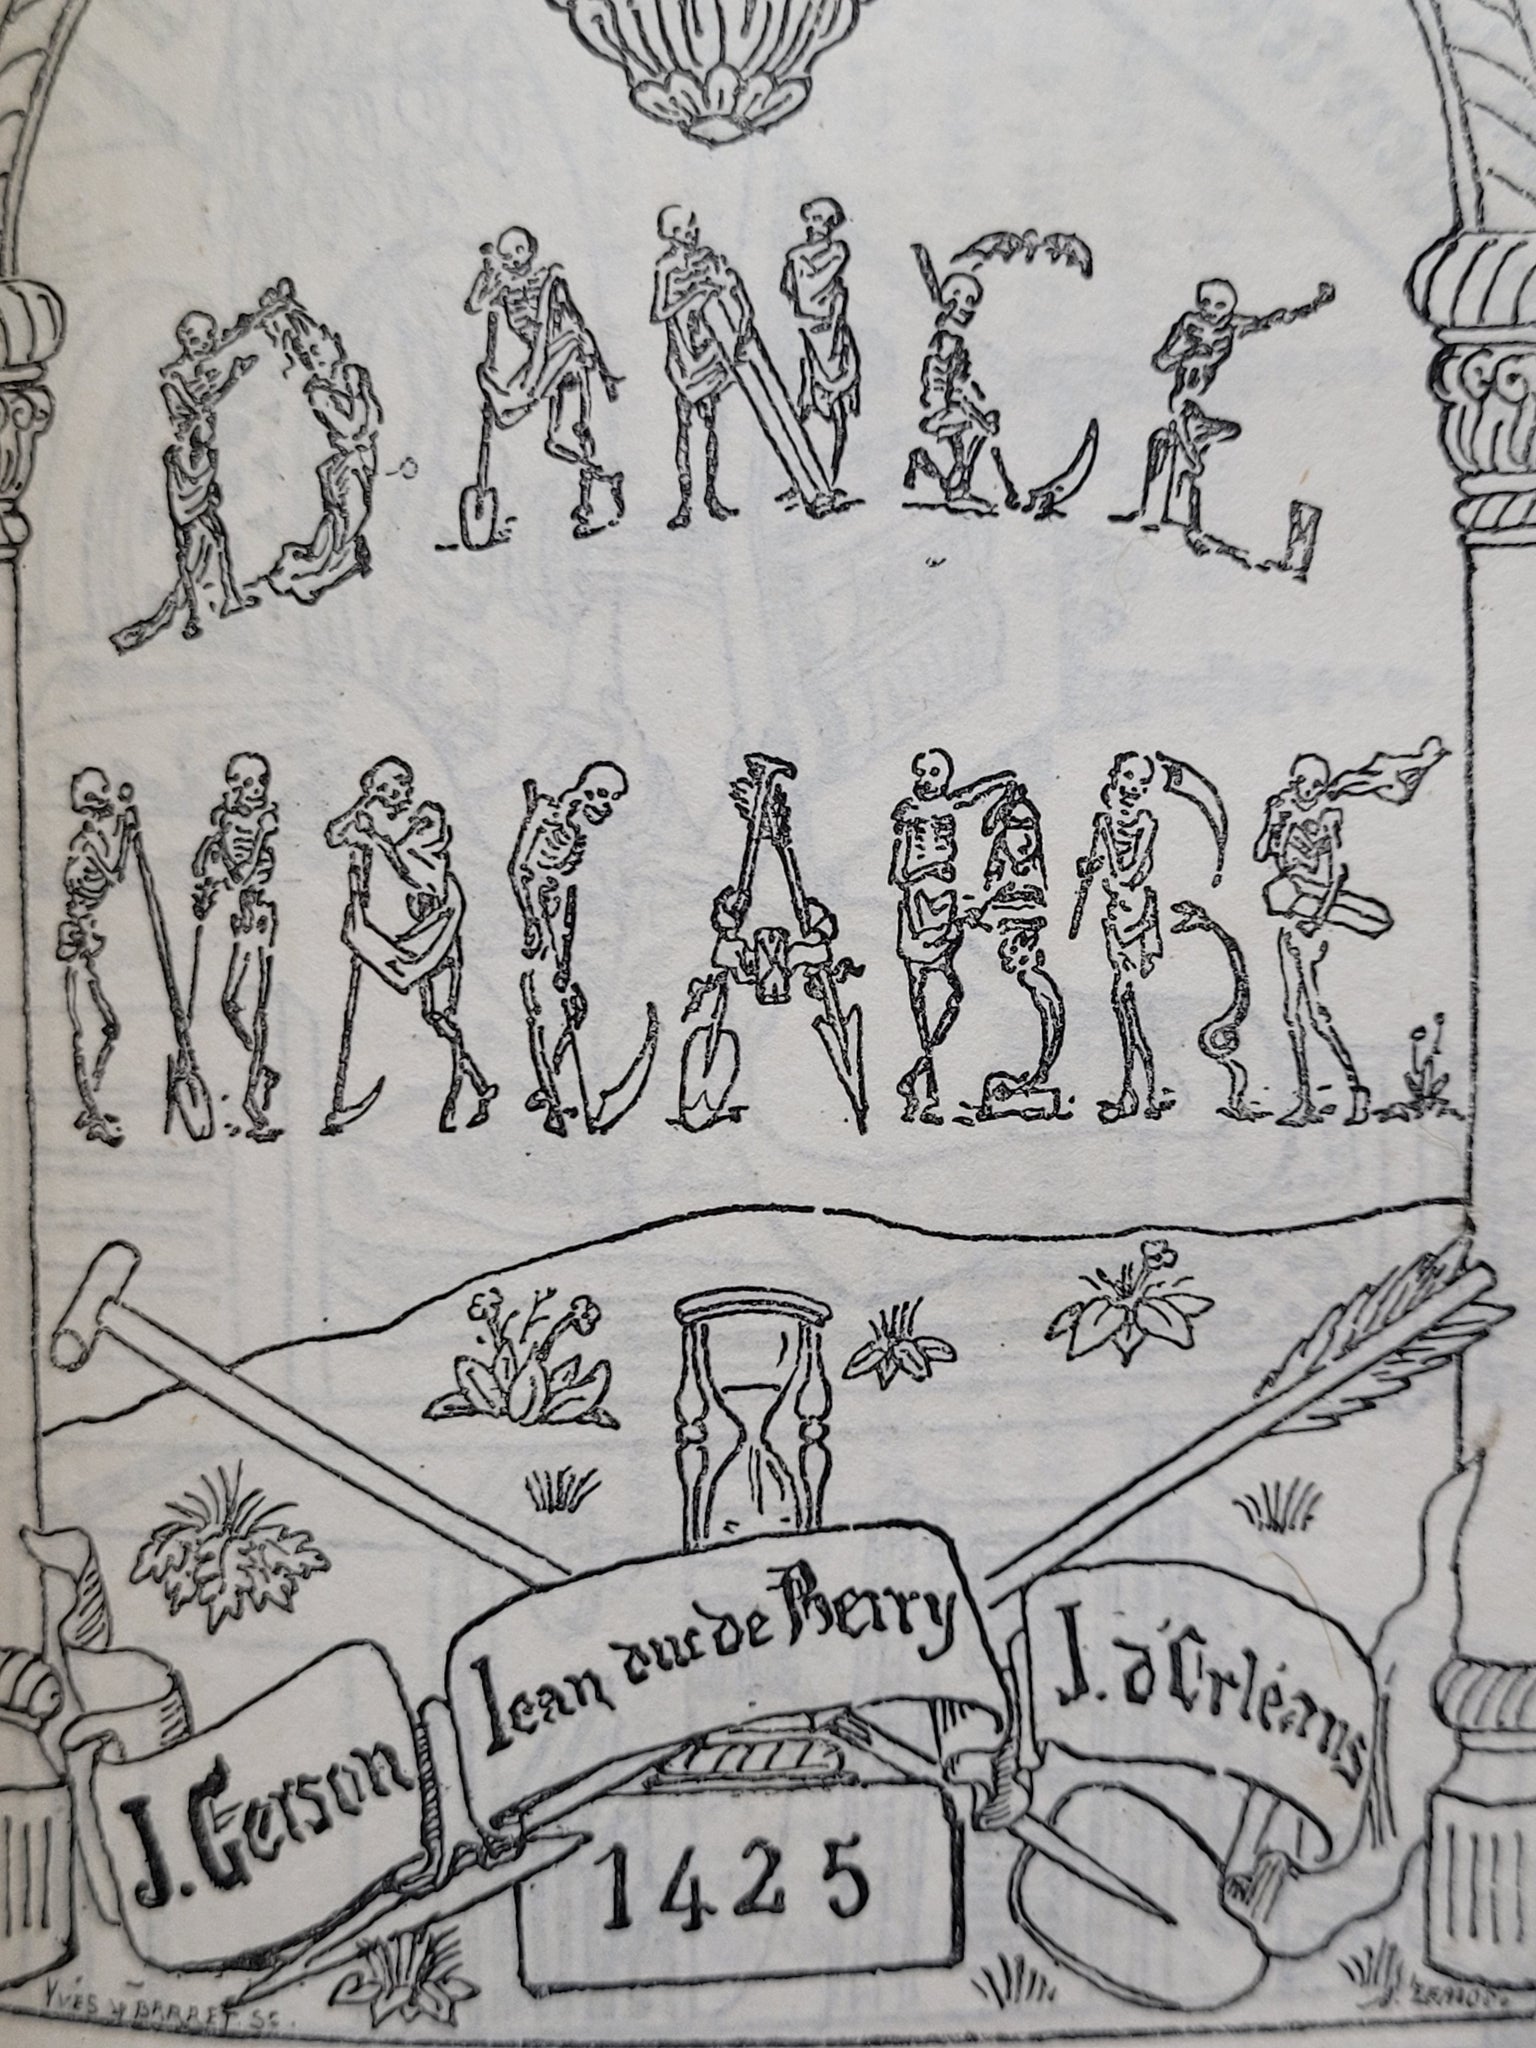 DANCE
MACABRE
J. Gerson
Jean duc de Berry
J. d'Orléans
1425
YVES & BARRET. Sc.